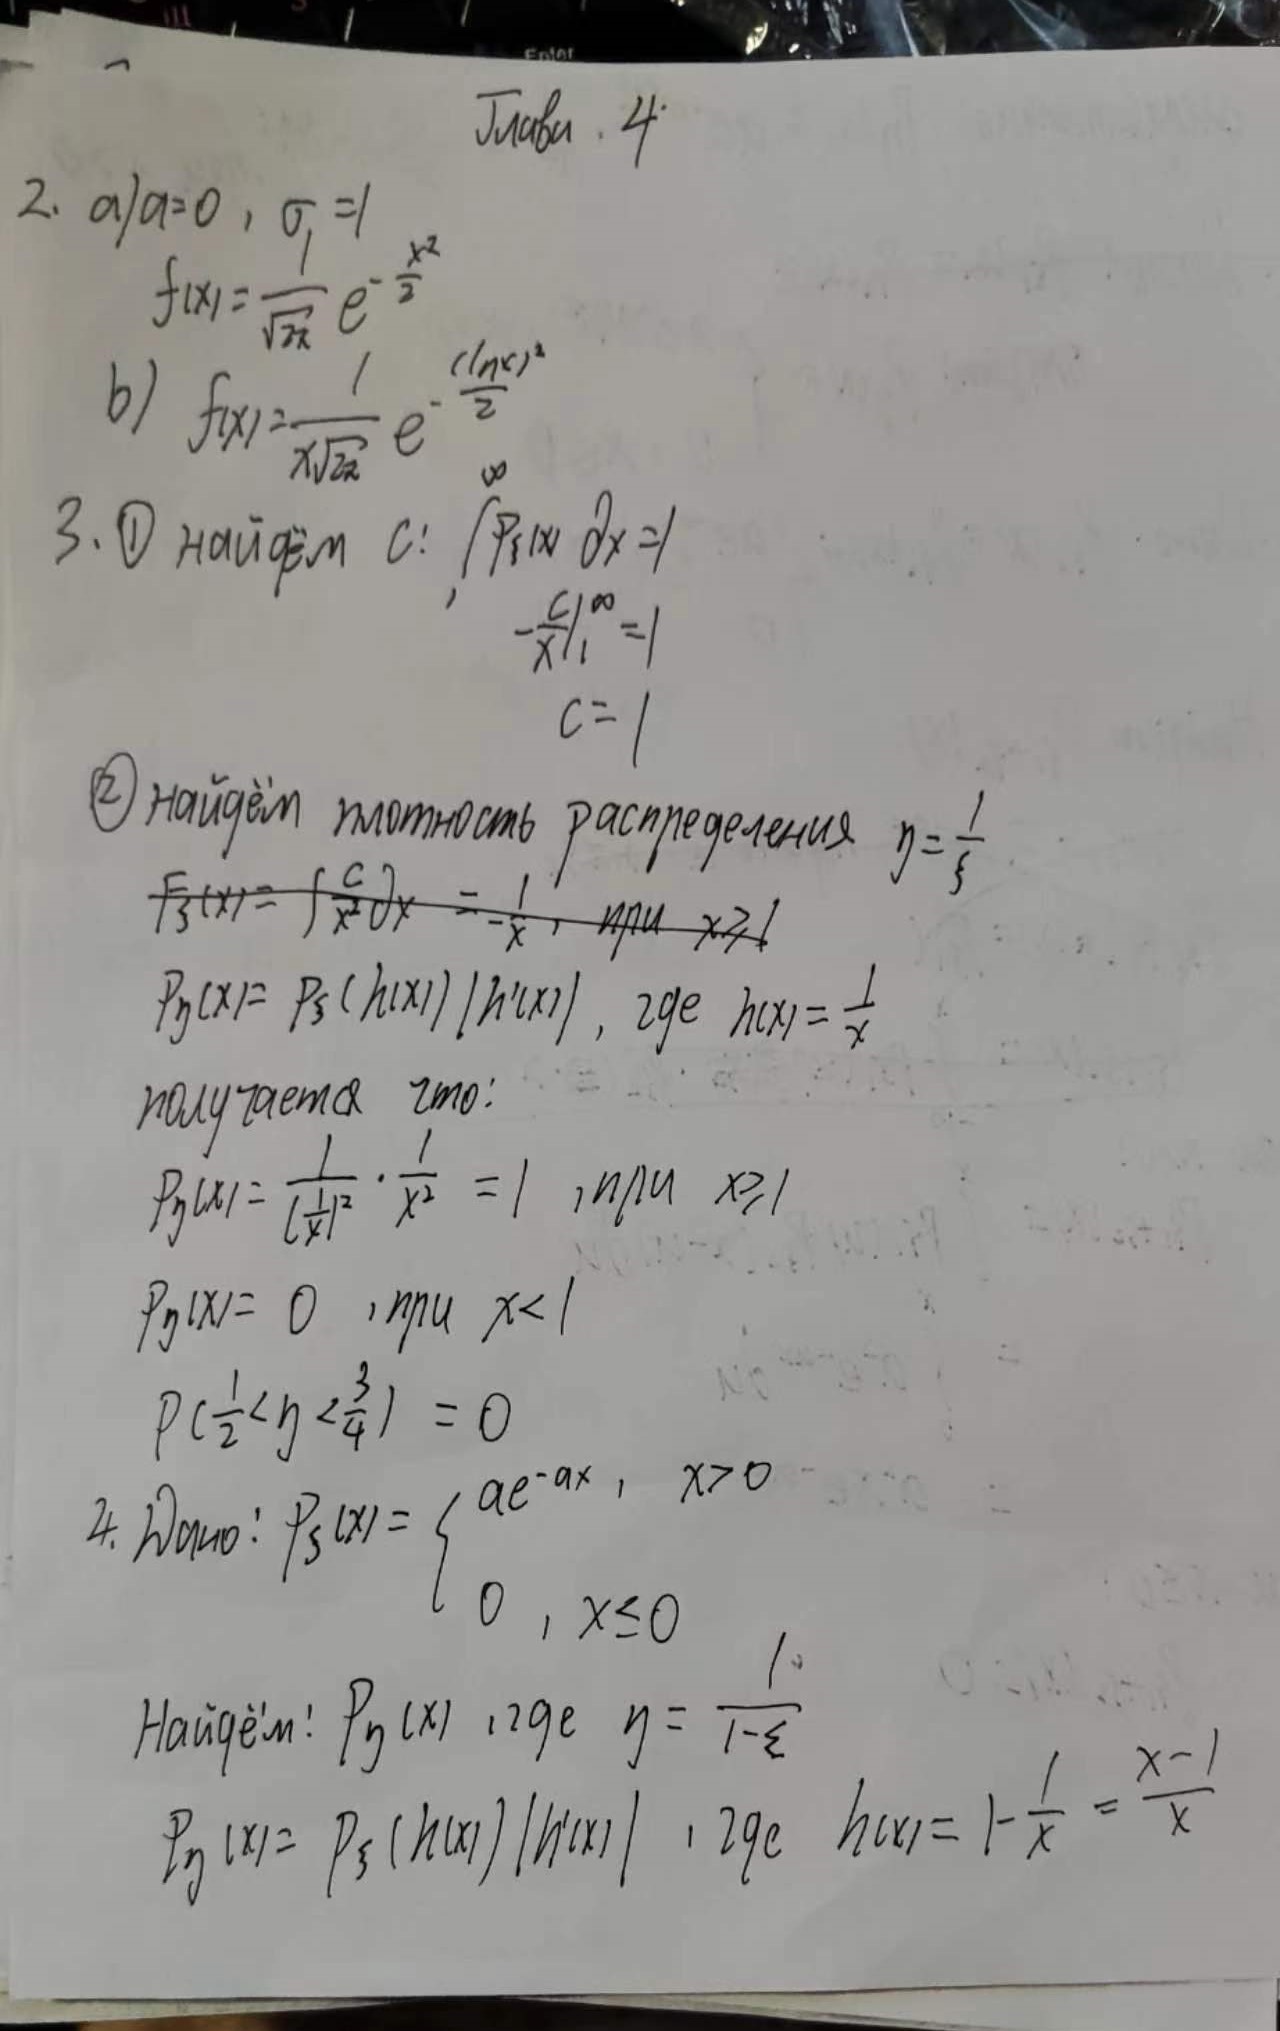 Глава . 4
2. a) a=0, σ=1
f(x) = \frac{1}{\sqrt{2π}} e^{-\frac{x^2}{2}}
b) f(x) = \frac{1}{x\sqrt{2π}} e^{-\frac{(lnx)^2}{2}}
3. ① найдём c: \int_1^∞ P_ξ(x) dx = 1
-\frac{c}{x}|_1^∞ = 1
c = 1
② найдём плотность распределения η = \frac{1}{ξ}
F_ξ(x) = \int \frac{c}{x^2} dx = \frac{1}{-x}, при x ≥ 1
P_η(x) = P_ξ(h(x)) |h'(x)|, где h(x) = \frac{1}{x}
получается что:
P_η(x) = \frac{1}{(\frac{1}{x})^2} · \frac{1}{x^2} = 1, при x ≥ 1
P_η(x) = 0, при x < 1
P(\frac{1}{2} < η < \frac{3}{4}) = 0
4. Дано: P_ξ(x) = { ae^{-ax}, x > 0
0, x ≤ 0
Найдём: P_η(x), где η = \frac{1}{1-ξ}
P_η(x) = P_ξ(h(x)) |h'(x)|, где h(x) = 1 - \frac{1}{x} = \frac{x-1}{x}